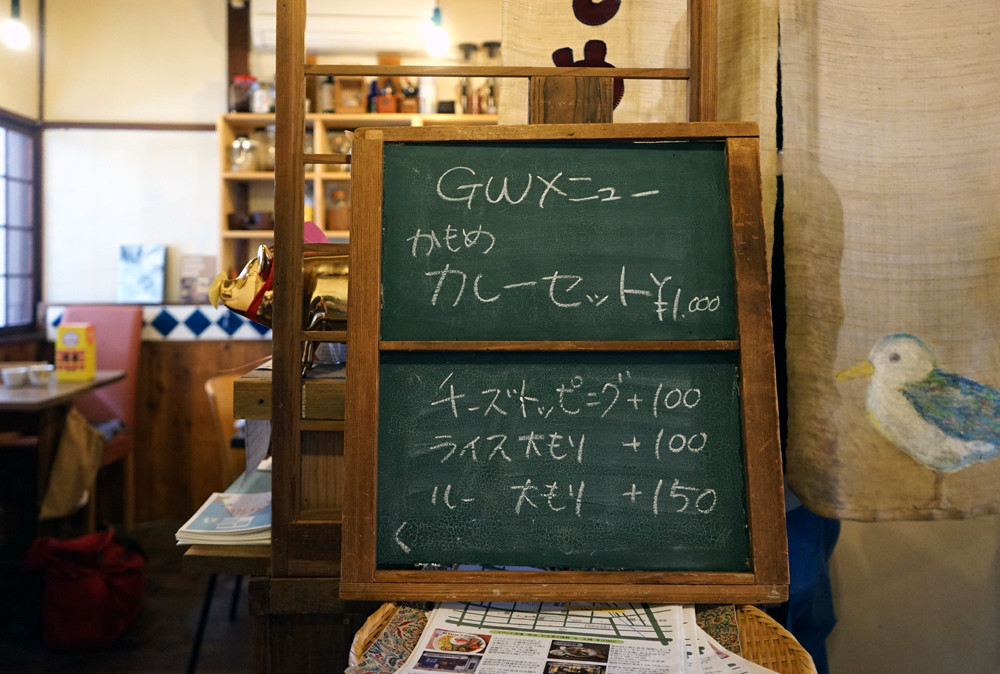 GWメニュー
かもめ
カレーセット¥1.000
チーズトッピング+100
ライス大もり +100
ルー 大もり +150